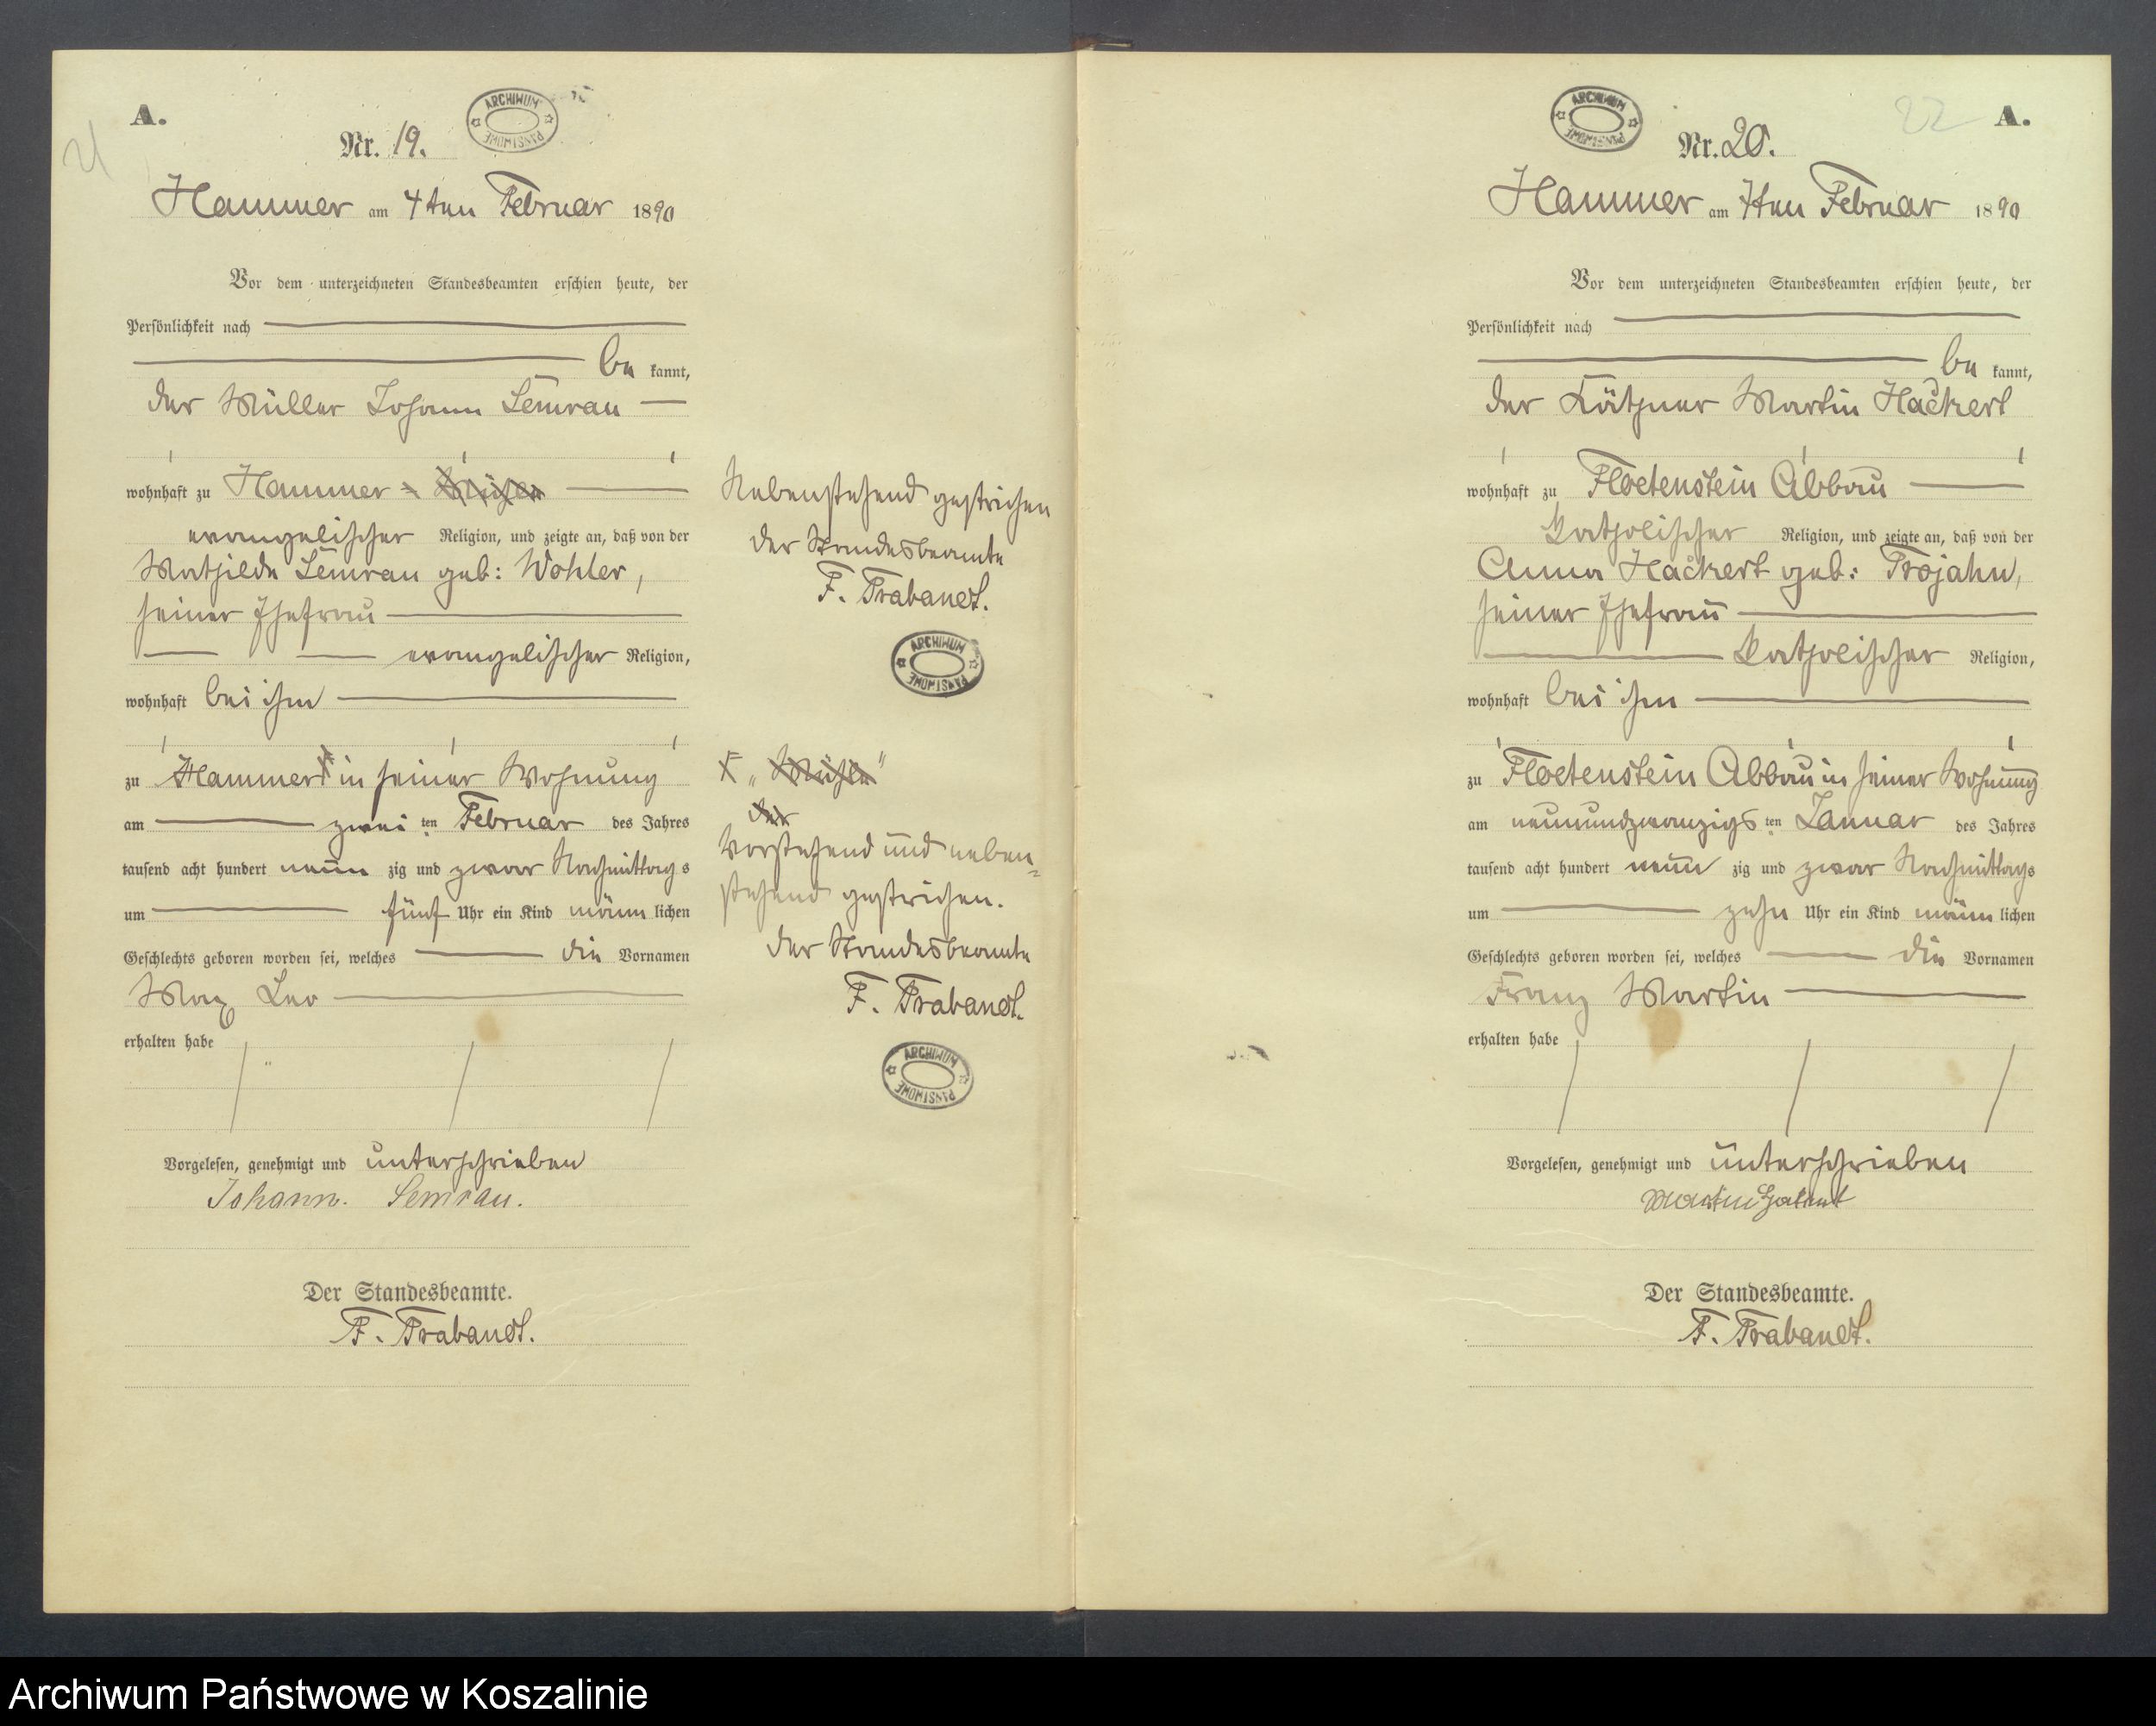 21
A.
ARCHIWUM PAŃSTWOWE
Nr. 19.
Hammer am 4ten Februar 1890
Vor dem unterzeichneten Standesbeamten erschien heute, der
Persönlichkeit nach
be kannt,
der Müller Johann Semrau
wohnhaft zu Hammer - Mühle
evangelischer Religion, und zeigte an, daß von der
Mathilde Semrau geb: Wohler,
seiner Ehefrau
evangelischer Religion,
wohnhaft bei ihm
zu Hammer in seiner Wohnung
am zwei ten Februar des Jahres
tausend acht hundert neun zig und zwar Nachmittag s
um fünf Uhr ein Kind männ lichen
Geschlechts geboren worden sei, welches die Vornamen
Max Leo
erhalten habe
Vorgelesen, genehmigt und unterschrieben
Johann. Semrau.
Der Standesbeamte.
F. Trabandt.
Nebenstehend gestrichen
der Standesbeamte
F. Trabandt.
ARCHIWUM PAŃSTWOWE
"Mühle"
der
Vorstehend und neben=
stehend gestrichen.
der Standesbeamte
F. Trabandt.
ARCHIWUM PAŃSTWOWE
ARCHIWUM PAŃSTWOWE
22
A.
Nr. 20.
Hammer am 7ten Februar 1890
Vor dem unterzeichneten Standesbeamten erschien heute, der
Persönlichkeit nach
be kannt,
der Käthner Martin Hackert
wohnhaft zu Floetenstein Abbau
katholischer Religion, und zeigte an, daß von der
Anna Hackert geb: Trojahn,
seiner Ehefrau
katholischer Religion,
wohnhaft bei ihm
zu Floetenstein Abbau in seiner Wohnung
am neunundzwanzigs ten Januar des Jahres
tausend acht hundert neun zig und zwar Nachmittags
um zehn Uhr ein Kind männ lichen
Geschlechts geboren worden sei, welches die Vornamen
Franz Martin
erhalten habe
Vorgelesen, genehmigt und unterschrieben
Martin
Der Standesbeamte.
F. Trabandt.
Archiwum Państwowe w Koszalinie